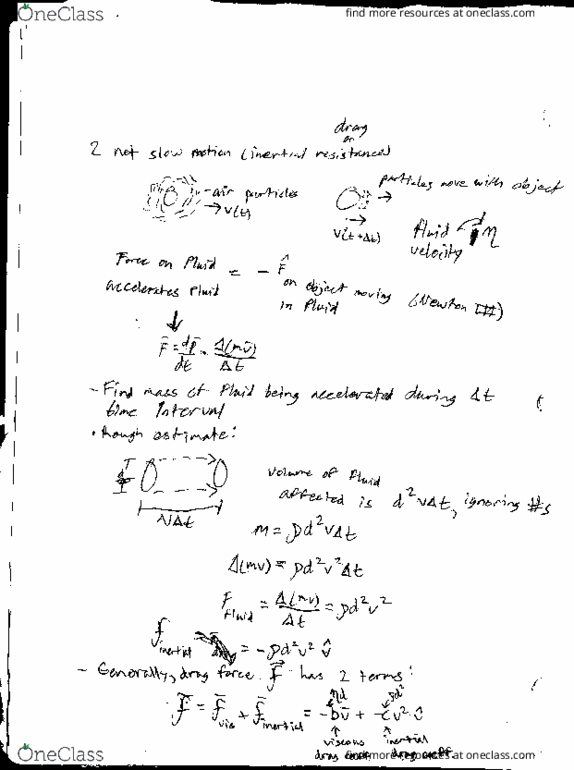 OneClass
find more resources at oneclass.com
drag
or
2 not slow motion (inertial resistance)
air particles
→ v(t)
particles move with object
v(t+Δt)
fluid velocity
η
Force on Fluid = - F̂ on object moving in Fluid (Newton III)
accelerates Fluid
F̄ = dp̄/dt = Δ(mv̄)/Δt
- Find mass of Fluid being accelerated during Δt
time Interval
• Rough estimate:
vΔt
volume of Fluid
affected is d²vΔt, ignoring #s
m = ρd²vΔt
Δ(mv) = ρd²v²Δt
F Fluid = Δ(mv)/Δt = ρd²v²
f inertial = -ρd²v² v̂
- Generally, drag force f⃗ has 2 terms:
ηd ρd²
f̄ = f̄ vis + f̄ inertial = -bv̄ + -cv² v̂
viscous inertial
drag drag
OneClass
find more resources at oneclass.com